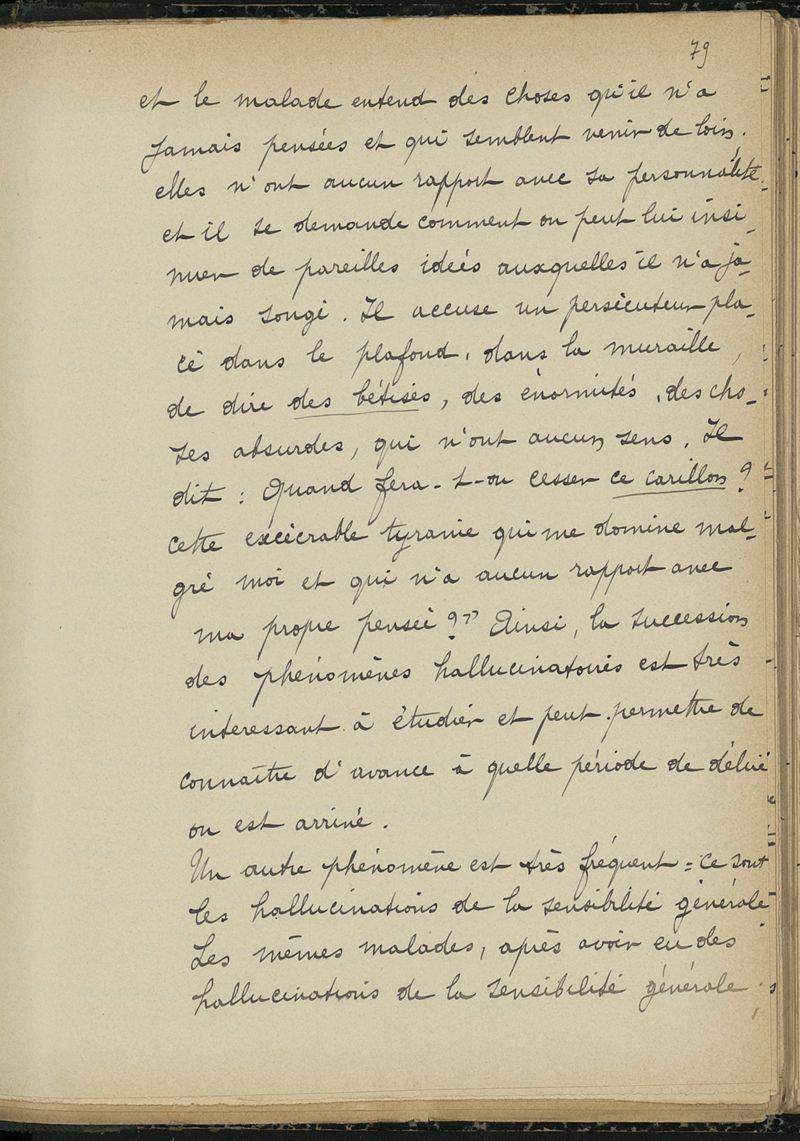 79
et le malade entend des choses qu'il n'a
jamais pensées et qui semblent venir de loin.
elles n'ont aucun rapport avec sa personnalité.
et il se demande comment on peut lui insi-
nuer de pareilles idées auxquelles il n'a ja-
mais songé. Il accuse un persécuteur pla-
cé dans le plafond, dans la muraille,
de dire des bêtises, des énormités, des cho-
ses absurdes, qui n'ont aucun sens. Il
dit : Quand fera-t-on cesser ce carillon ?
cette excécrable tyranie qui me domine mal-
gré moi et qui n'a aucun rapport avec
ma propre pensée ?" Ainsi, la succession
des phénomènes hallucinatoires est très
interessant à étudier et peut permettre de
connaître d'avance à quelle période de délire
on est arrivé.
Un autre phénomène est très fréquent = ce sont
les hallucinations de la sensibilité générale
Les mêmes malades, après avoir eu des
hallucinations de la sensibilité générale,